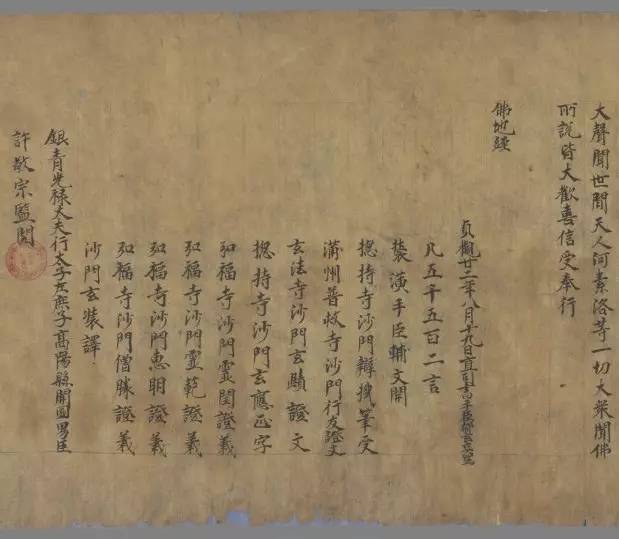 大聲聞世間天人阿素洛等一切大衆聞佛
所說皆大歡喜信受奉行
佛地經
貞觀廿二年八月十九日直司書手臣
凡五千五百二言
裝潢手臣輔文開
惣持寺沙門辯機筆受
蒲州普救寺沙門行友證文
玄法寺沙門玄賾證文
惣持寺沙門玄應正字
弘福寺沙門靈閏證義
弘福寺沙門靈範證義
弘福寺沙門惠明證義
弘福寺沙門僧勝證義
沙門玄奘譯
銀青光祿大夫行太子左庶子高陽縣開國男臣
許敬宗監閱